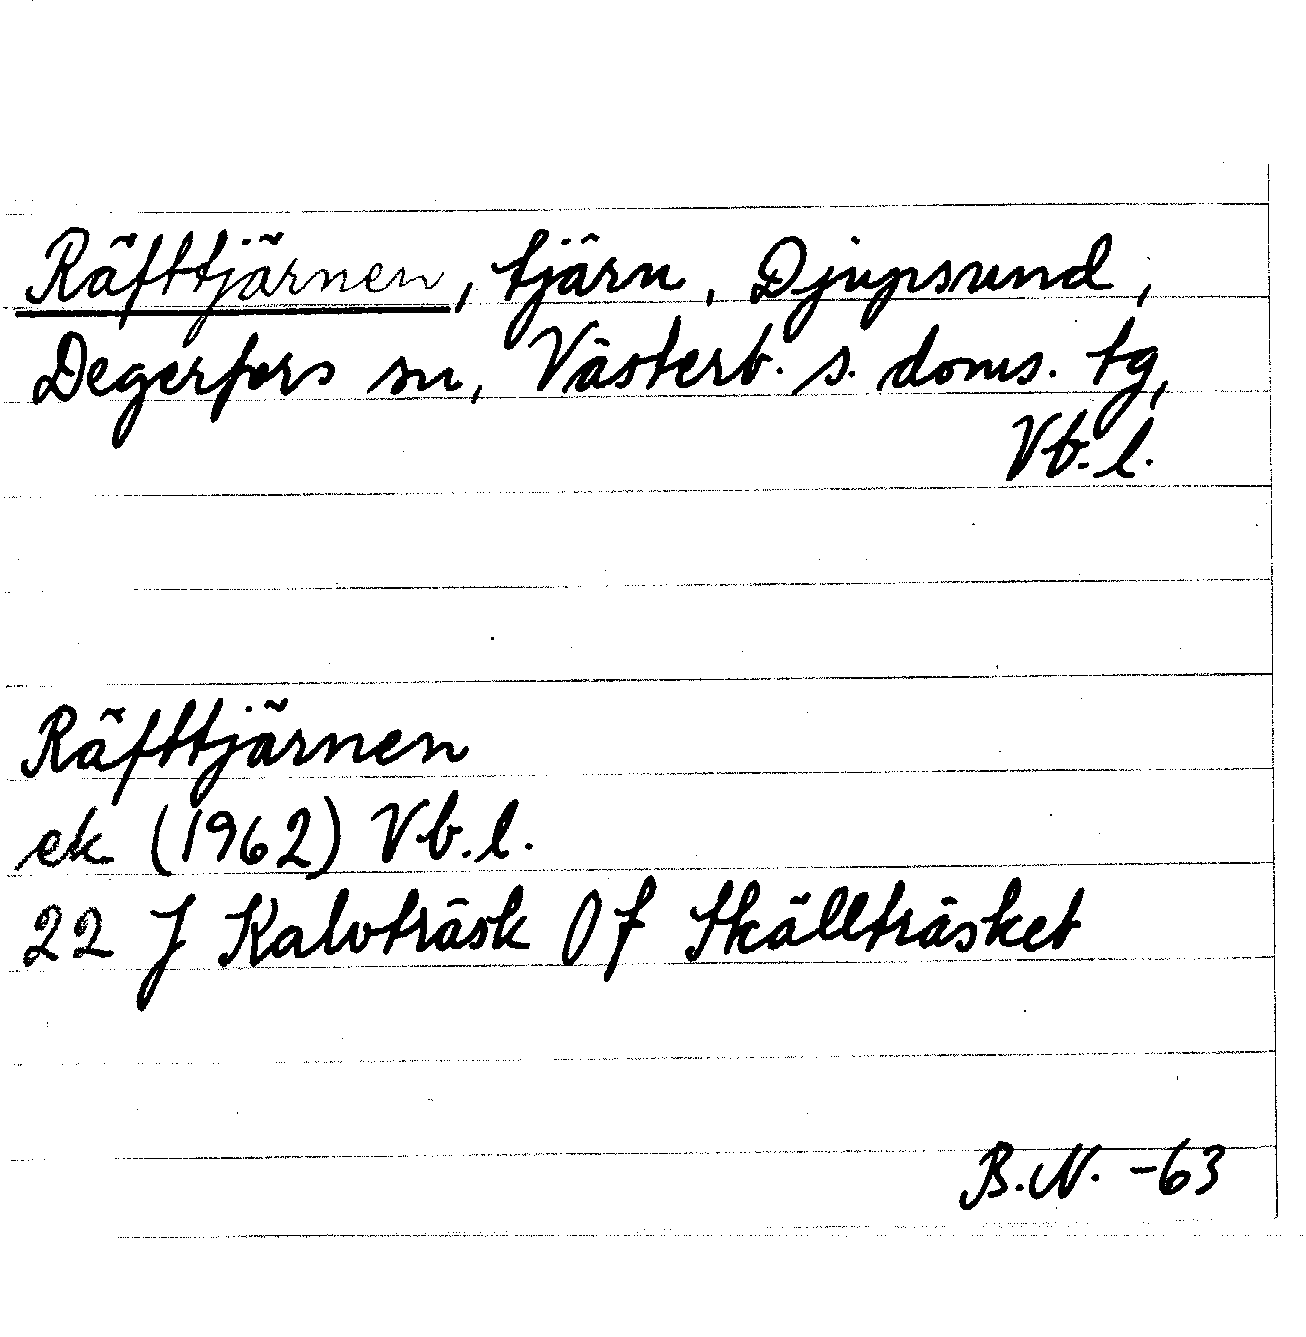 Räfttjärnen, tjärn, Djupsund,
Degerfors sn, Västerb. s. doms. tg,
Vb. l.
Räfttjärnen
ek (1962) Vb. l.
22 J Kalvträsk 0 f Skällträsket
B. N. -63